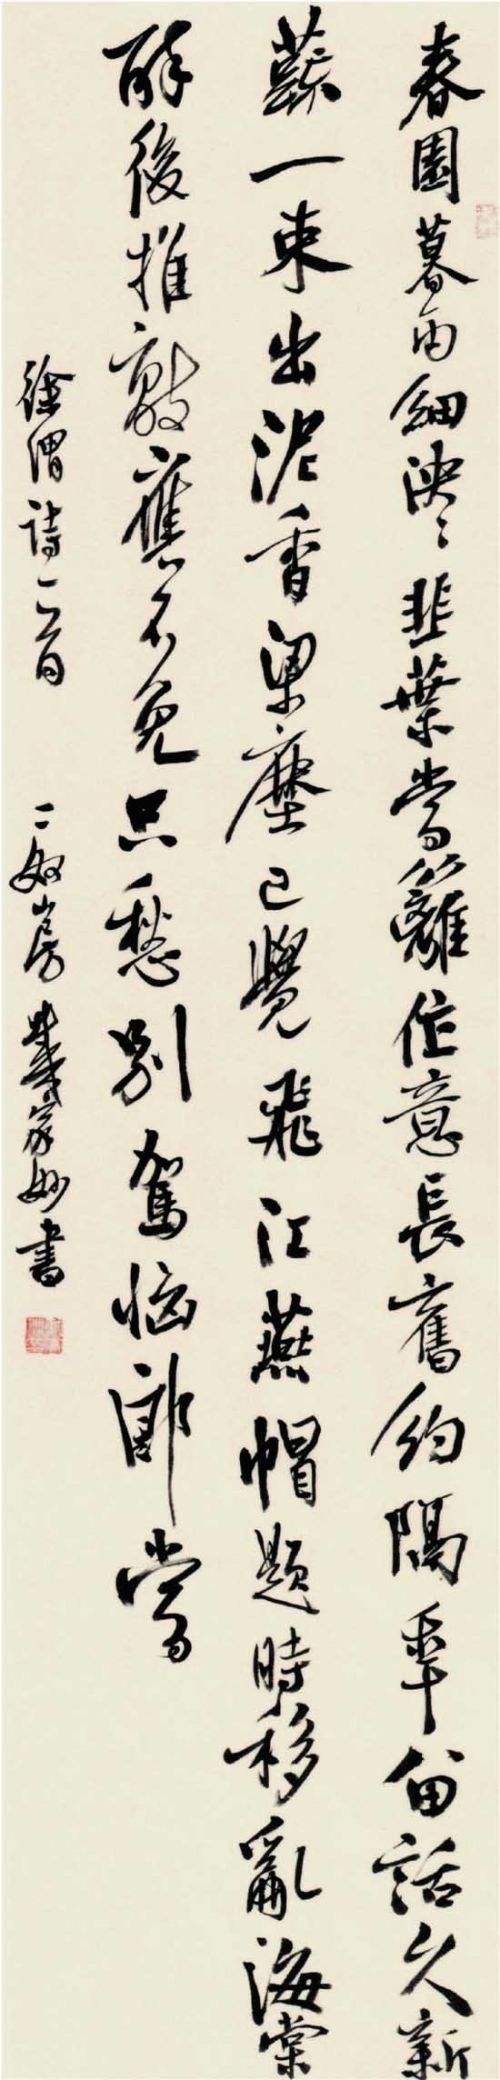 春園暮雨細泱〻韭葉當籬作意長舊約隔年留話久新
蔬一束出泥香梁塵已覺飛江燕帽影時移亂海棠
醉後推敲應不免只愁別駕惱郎當
徐渭詩一首 山房 書